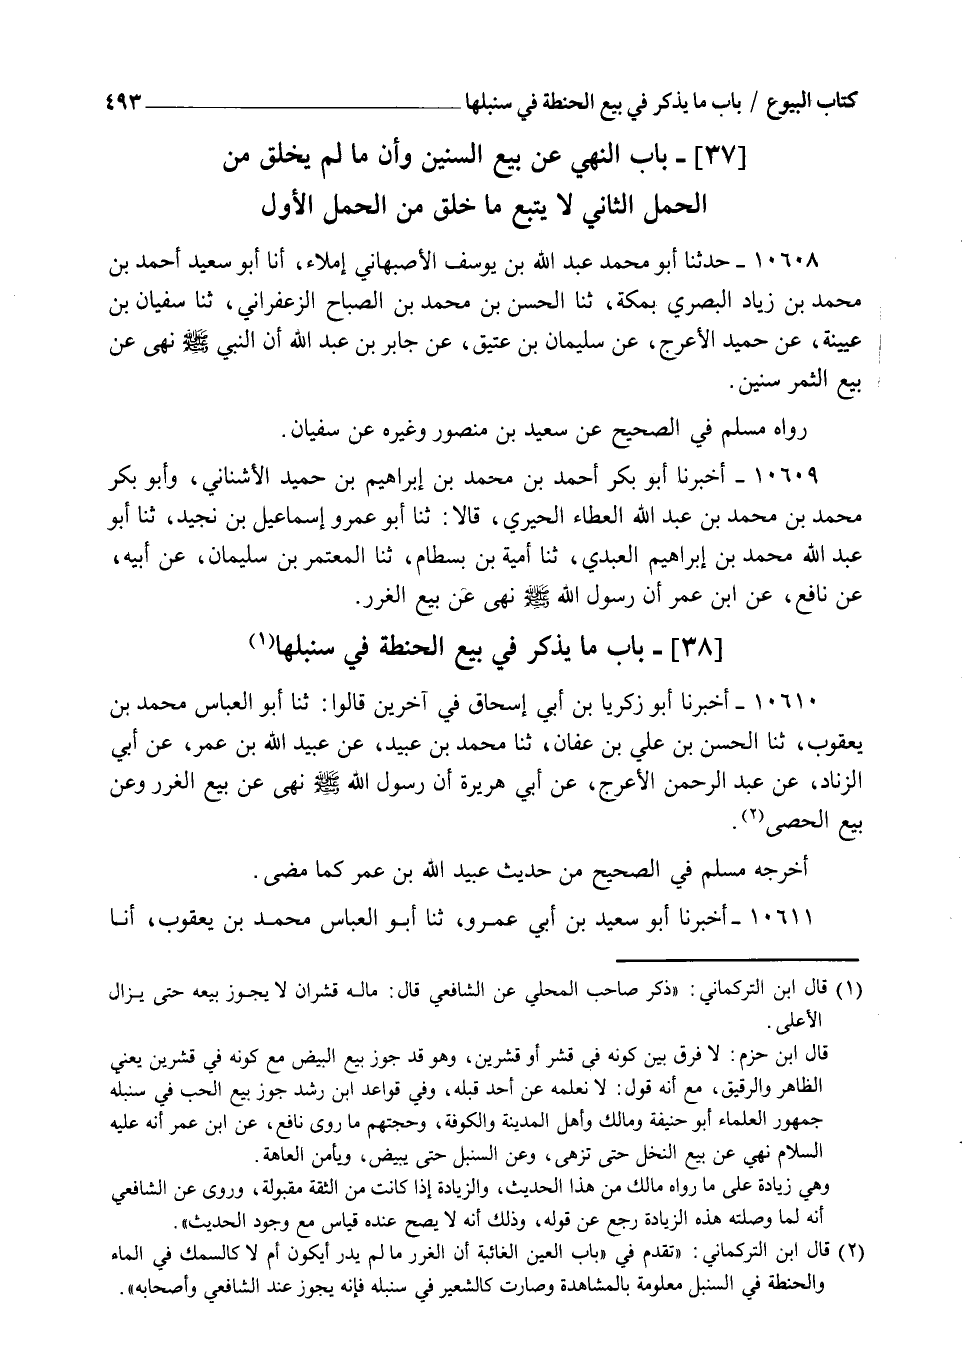 كتاب البيوع / باب ما يذكر في بيع الحنطة في سنبلها ٤٩٣
[٣٧] ـ باب النهي عن بيع السنين وأن ما لم يخلق من
الحمل الثاني لا يتبع ما خلق من الحمل الأول
١٠٦٠٨ ـ حدثنا أبو محمد عبد الله بن يوسف الأصبهاني إملاء، أنا أبو سعيد أحمد بن
محمد بن زياد البصري بمكة، ثنا الحسن بن محمد بن الصباح الزعفراني، ثنا سفيان بن
عيينة، عن حميد الأعرج، عن سليمان بن عتيق، عن جابر بن عبد الله أن النبي ﷺ نهى عن
بيع الثمر سنين.
رواه مسلم في الصحيح عن سعيد بن منصور وغيره عن سفيان.
١٠٦٠٩ ـ أخبرنا أبو بكر أحمد بن محمد بن إبراهيم بن حميد الأشناني، وأبو بكر
محمد بن محمد بن عبد الله العطاء الحيري، قالا: ثنا أبو عمرو إسماعيل بن نجيد، ثنا أبو
عبد الله محمد بن إبراهيم العبدي، ثنا أمية بن بسطام، ثنا المعتمر بن سليمان، عن أبيه،
عن نافع، عن ابن عمر أن رسول الله ﷺ نهى عن بيع الغرر.
[٣٨] ـ باب ما يذكر في بيع الحنطة في سنبلها(١)
١٠٦١٠ ـ أخبرنا أبو زكريا بن أبي إسحاق في آخرين قالوا: ثنا أبو العباس محمد بن
يعقوب، ثنا الحسن بن علي بن عفان، ثنا محمد بن عبيد، عن عبيد الله بن عمر، عن أبي
الزناد، عن عبد الرحمن الأعرج، عن أبي هريرة أن رسول الله ﷺ نهى عن بيع الغرر وعن
بيع الحصى(٢).
أخرجه مسلم في الصحيح من حديث عبيد الله بن عمر كما مضى.
١٠٦١١ ـ أخبرنا أبو سعيد بن أبي عمرو، ثنا أبو العباس محمد بن يعقوب، أنا
(١) قال ابن التركماني: «ذكر صاحب المحلي عن الشافعي قال: ماله قشران لا يجوز بيعه حتى يزال
الأعلى.
قال ابن حزم: لا فرق بين كونه في قشر أو قشرين، وهو قد جوز بيع البيض مع كونه في قشرين يعني
الظاهر والرقيق، مع أنه قول: لا نعلمه عن أحد قبله، وفي قواعد ابن رشد جوز بيع الحب في سنبله
جمهور العلماء أبو حنيفة ومالك وأهل المدينة والكوفة، وحجتهم ما روى نافع، عن ابن عمر أنه عليه
السلام نهي عن بيع النخل حتى تزهى، وعن السنبل حتى يبيض، ويأمن العاهة.
وهي زيادة على ما رواه مالك من هذا الحديث، والزيادة إذا كانت من الثقة مقبولة، وروى عن الشافعي
أنه لما وصلته هذه الزيادة رجع عن قوله، وذلك أنه لا يصح عنده قياس مع وجود الحديث».
(٢) قال ابن التركماني: «تقدم في «باب العين الغائبة أن الغرر ما لم يدر أيكون أم لا كالسمك في الماء
والحنطة في السنبل معلومة بالمشاهدة وصارت كالشعير في سنبله فإنه يجوز عند الشافعي وأصحابه».